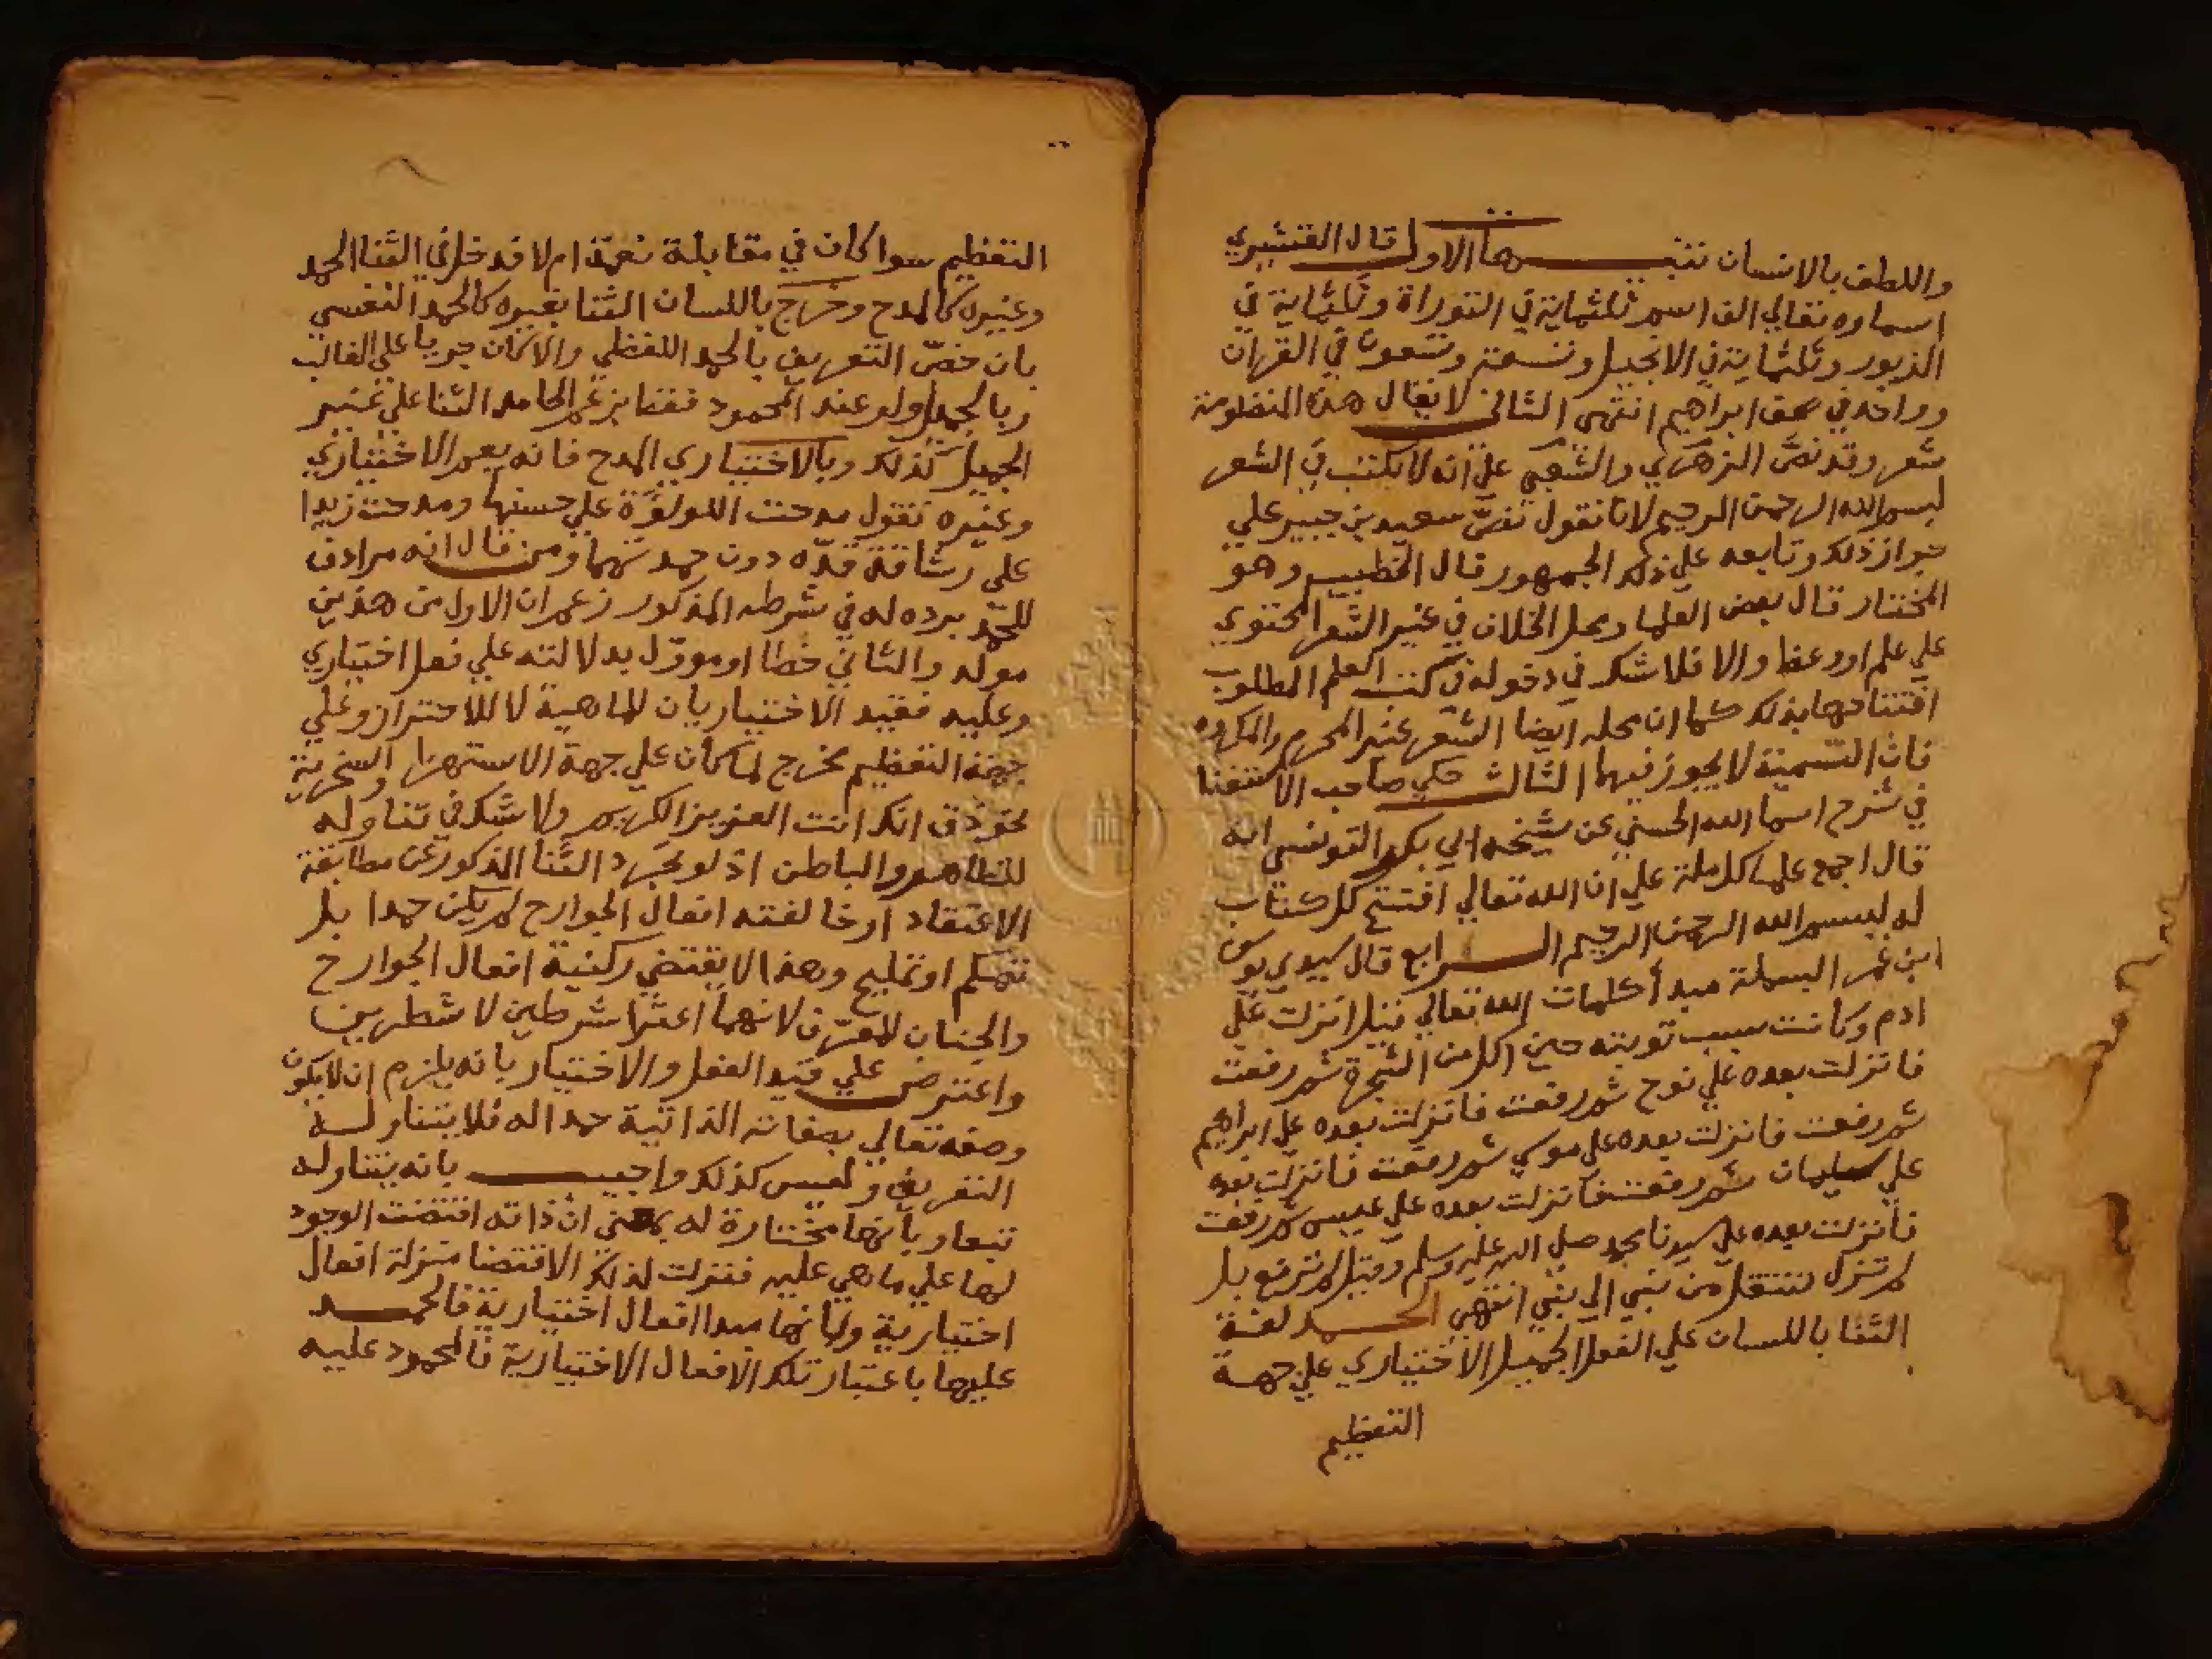 واللطف بالانسان تنبيها الاول قال القشيري
اسماوه تعالي الف اسم ثلثماية في التوراة وثلثماية في
الزبور وثلثماية في الانجيل وتسعة وتسعون في القران
وواحد في صحف ابراهيم انتهي الثاني لا يقال هذه المنظومة
شعر وقد نص الزهري والشعبي علي انه لا يكتب في الشعر
بسم الله الرحمن الرحيم لانا نقول نص سعيد بن جبير علي
جواز ذلك وتابعه علي ذلك الجمهور قال الخطيب وهو
المختار قال بعض العلما ومحل الخلاف في غير الشعر المحتوي
علي علم او وعظ والا فلا شك في دخوله في كتب العلم المطلوب
افتتاحها بذلك كما ان محله ايضا الشعر غير المحرم والمكروه
فان التسمية لا يجوز فيهما الثالث حكي صاحب الاستغنا
في شرح اسما الله الحسني عن شيخه ابي بكر التونسي انه
قال اجمع علما كل ملة علي ان الله تعالي افتتح كل كتاب
له ببسم الله الرحمن الرحيم الرابع قال سيدي يوسف
ابن عمر البسملة مبدأ كلمات الله تعالي قيل انزلت علي
ادم وكانت سبب توبته حين اكل من الشجرة ثم رفعت
فانزلت بعده علي نوح ثم رفعت فانزلت بعده علي ابراهيم
ثم رفعت فانزلت بعده علي موسي ثم رفعت فانزلت بعده
علي سليمان ثم رفعت فانزلت بعده علي عيسي ثم رفعت
فانزلت بعده علي سيدنا محمد صلي الله عليه وسلم وقيل لم ترفع بل
لم تزل تنتقل من نبي الي نبي انتهي الحمد لغة
الثنا باللسان علي الفعل الجميل الاختياري علي جهة
التعظيم
التعظيم سوا كان في مقابلة نعمة ام لا فدخل في الثنا الحمد
وغيره كالمدح وخرج باللسان الثنا بغيره كالحمد النفسي
بان خص التعريف بالحمد اللفظي والا كان جريا علي الغالب
وبالجميل ولو عند المحمود فقط بزعم الحامد الثنا علي غير
الجميل كذلك وبالاختياري المدح فانه يعم الاختياري
وغيره تقول مدحت اللولؤة علي حسنها ومدحت زيدا
علي رشاقة قده دون حمدتهما ومن قال انه مرادف
للحمد برده له في شرطه المذكور زعم ان الاول من هذين
مولد والثاني خطا او موول بدلالته علي فعل اختياري
وعليه فقيد الاختيار بيان للماهية لا للاحتراز وعلي
جهة التعظيم مخرج لما كان علي جهة الاستهزا والسخرية
نحو ذق انك انت العزيز الكريم ولا شك في تناوله
للظاهر والباطن اذ لو تجرد الثنا المذكور عن مطابقة
الاعتقاد او خالفته افعال الجوارح لم يكن حمدا بل
تهكم او تمليح وهذا لا يقتضي ركنية افعال الجوارح
والجنان للمعرف لانهما اعتبرا شرطين لا شطرين
واعترض علي قيد الفعل والاختيار بانه يلزم ان لا يكون
وصفه تعالي بصفاته الذاتية حمدا له فلا يتناوله
التعريف وليس كذلك واجيب بانه يتناوله
تبعا وبانها مختارة له بمعني ان ذاته اقتضت الوجود
لها علي ما هي عليه فنزلت لذلك الاقتضا منزلة افعال
اختيارية وبانها مبدا افعال اختيارية فالحمد
عليها باعتبار تلك الافعال الاختيارية فالمحمود عليه